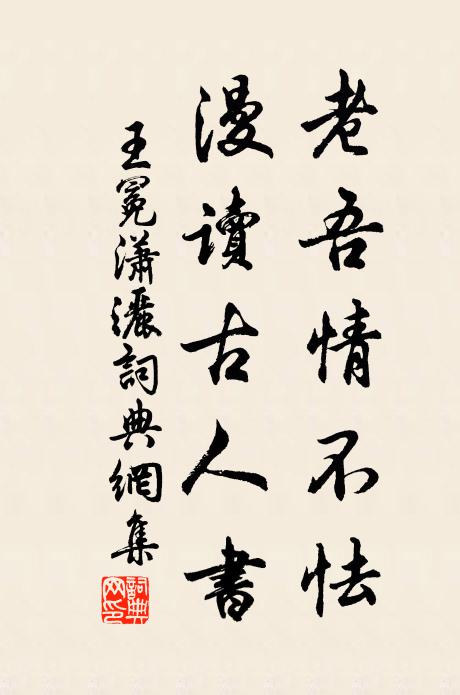 老吾情不怯
漫讀古人書
王冕瀟灑詞典網集
詞典网印